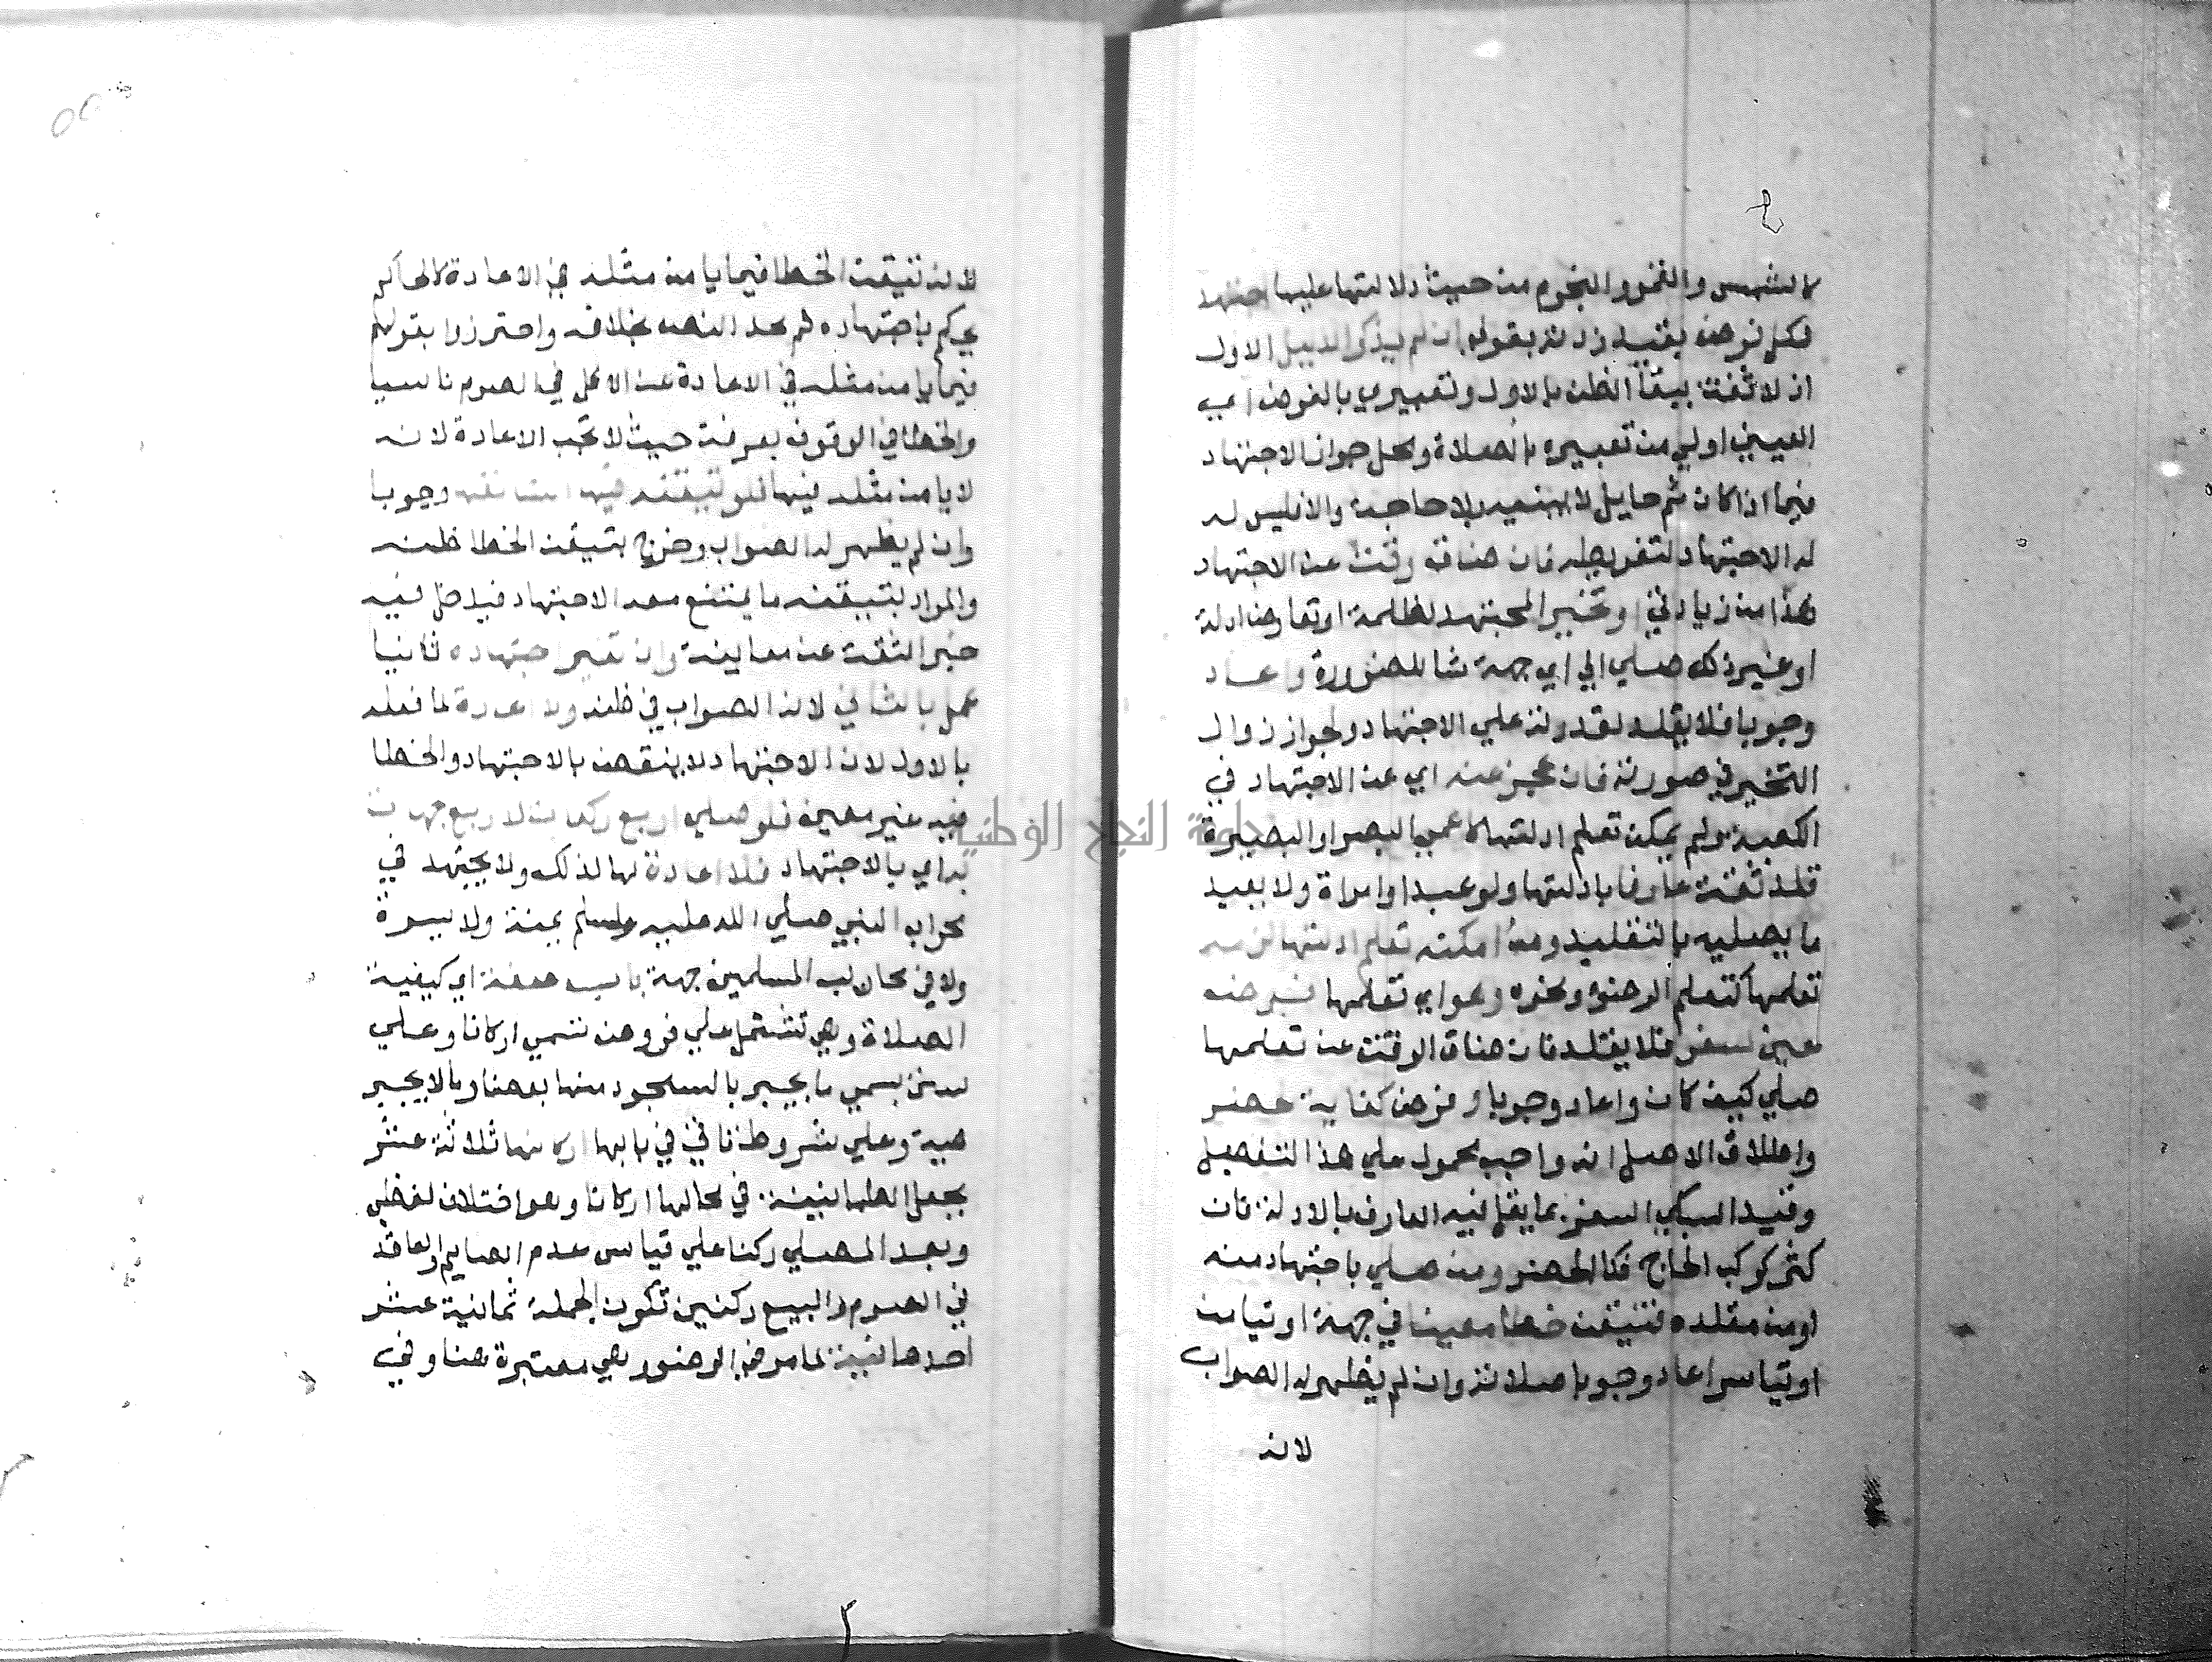 كالشمس والقمر والنجوم من حيث دلالتها عليها اجتهد
لكل فرض بقيد زدته بقولي ان لم يذكر الدليل الاول
اذ لا ثقة ببقا الظن بالاول وتعبيري بالفرض اي
العيني اولي من تعبيره بالصلاة ومحل جواز الاجتهاد
فيما اذا كان ثم حايل لا يبنيه بلا حاجة والا فليس له
له الاجتهاد لتفريطه فان ضاق وقت عن الاجتهاد
هذا من زيادتي او تحير المجتهد لظلمة او تعارض ادلة
او غير ذلك صلي الي اي جهة شا للضرورة واعاد
وجوبا فلا يقلد لقدرته علي الاجتهاد ولجواز زوال
التحير في صورته فان عجز عنه اي عن الاجتهاد في
الكعبة ولم يمكن تعلم ادلتها كاعمي البصر او البصيرة
قلد ثقة عارفا بادلتها ولو عبدا او امراة ولا يعيد
ما يصليه بالتقليد ومن امكنه تعلم ادلتها لزمه
تعلمها كتعلم الوضوء ونحوه وهو اي تعلمها فرض
عين لسفر فلا يقلد فان ضاق الوقت عن تعلمها
صلي كيف كان واعاد وجوبا وفرض كفاية حضر
واطلاق الاصل انه واجب محمول علي هذا التفصيل
وقيد السبكي السفر بما يقل فيه العارف بالادلة فان
كثر كركب الحاج فكالحضر ومن صلي باجتهاد منه
او من مقلده فتيقن خطا معينا في جهة او تيامن
او تياسر اعاد وجوبا صلاته وان لم يظهر له الصواب
لانه
لانه تيقن الخطا فيما يامن مثله في الاعادة كالحاكم
يحكم باجتهاده ثم يجد النص بخلافه واحترزوا بقولهم
فيما يامن مثله في الاعادة عن الاكل في الصوم ناسيا
والخطا في الوقوف بعرفة حيث لا تجب الاعادة لانه
لا يامن مثله فيها فلو تيقنه فيها استانفها وجوبا
وان لم يظهر له الصواب وخرج بتيقن الخطا ظنه
والمراد بتيقنه ما يمتنع معه الاجتهاد فيدخل فيه
خبر الثقة عن معاينة وان تغير اجتهاده ثانيا
عمل بالثاني لانه الصواب في ظنه ولا اعادة لما فعله
بالاول لان الاجتهاد لا ينقض بالاجتهاد والخطا
فيه غير معين فلو صلي اربع ركعات لاربع جهات
به اي بالاجتهاد فلا اعادة لها لذلك ولا يجتهد في
محراب النبي صلي الله عليه وسلم يمنة ولا يسرة
ولا في محاريب المسلمين جهة باب صفة اي كيفية
الصلاة وهي تشتمل علي فروض تسمي اركانا وعلي
سنن يسمي ما يجبر بالسجود منها بعضا وما لا يجبر
هيية وعلي شروط تاتي في بابها اركانها ثلاثة عشر
بجعل الطمانينة في محالها اركانا وهو اختلاف لفظي
وبعد المصلي ركنا علي قياس عدم الصايم والعاقد
في الصوم والبيع ركنين تكون الجملة ثمانية عشر
احدها نية لما مر في الوضوء وهي معتبرة هنا وفي
جامعة النجاح الوطنية